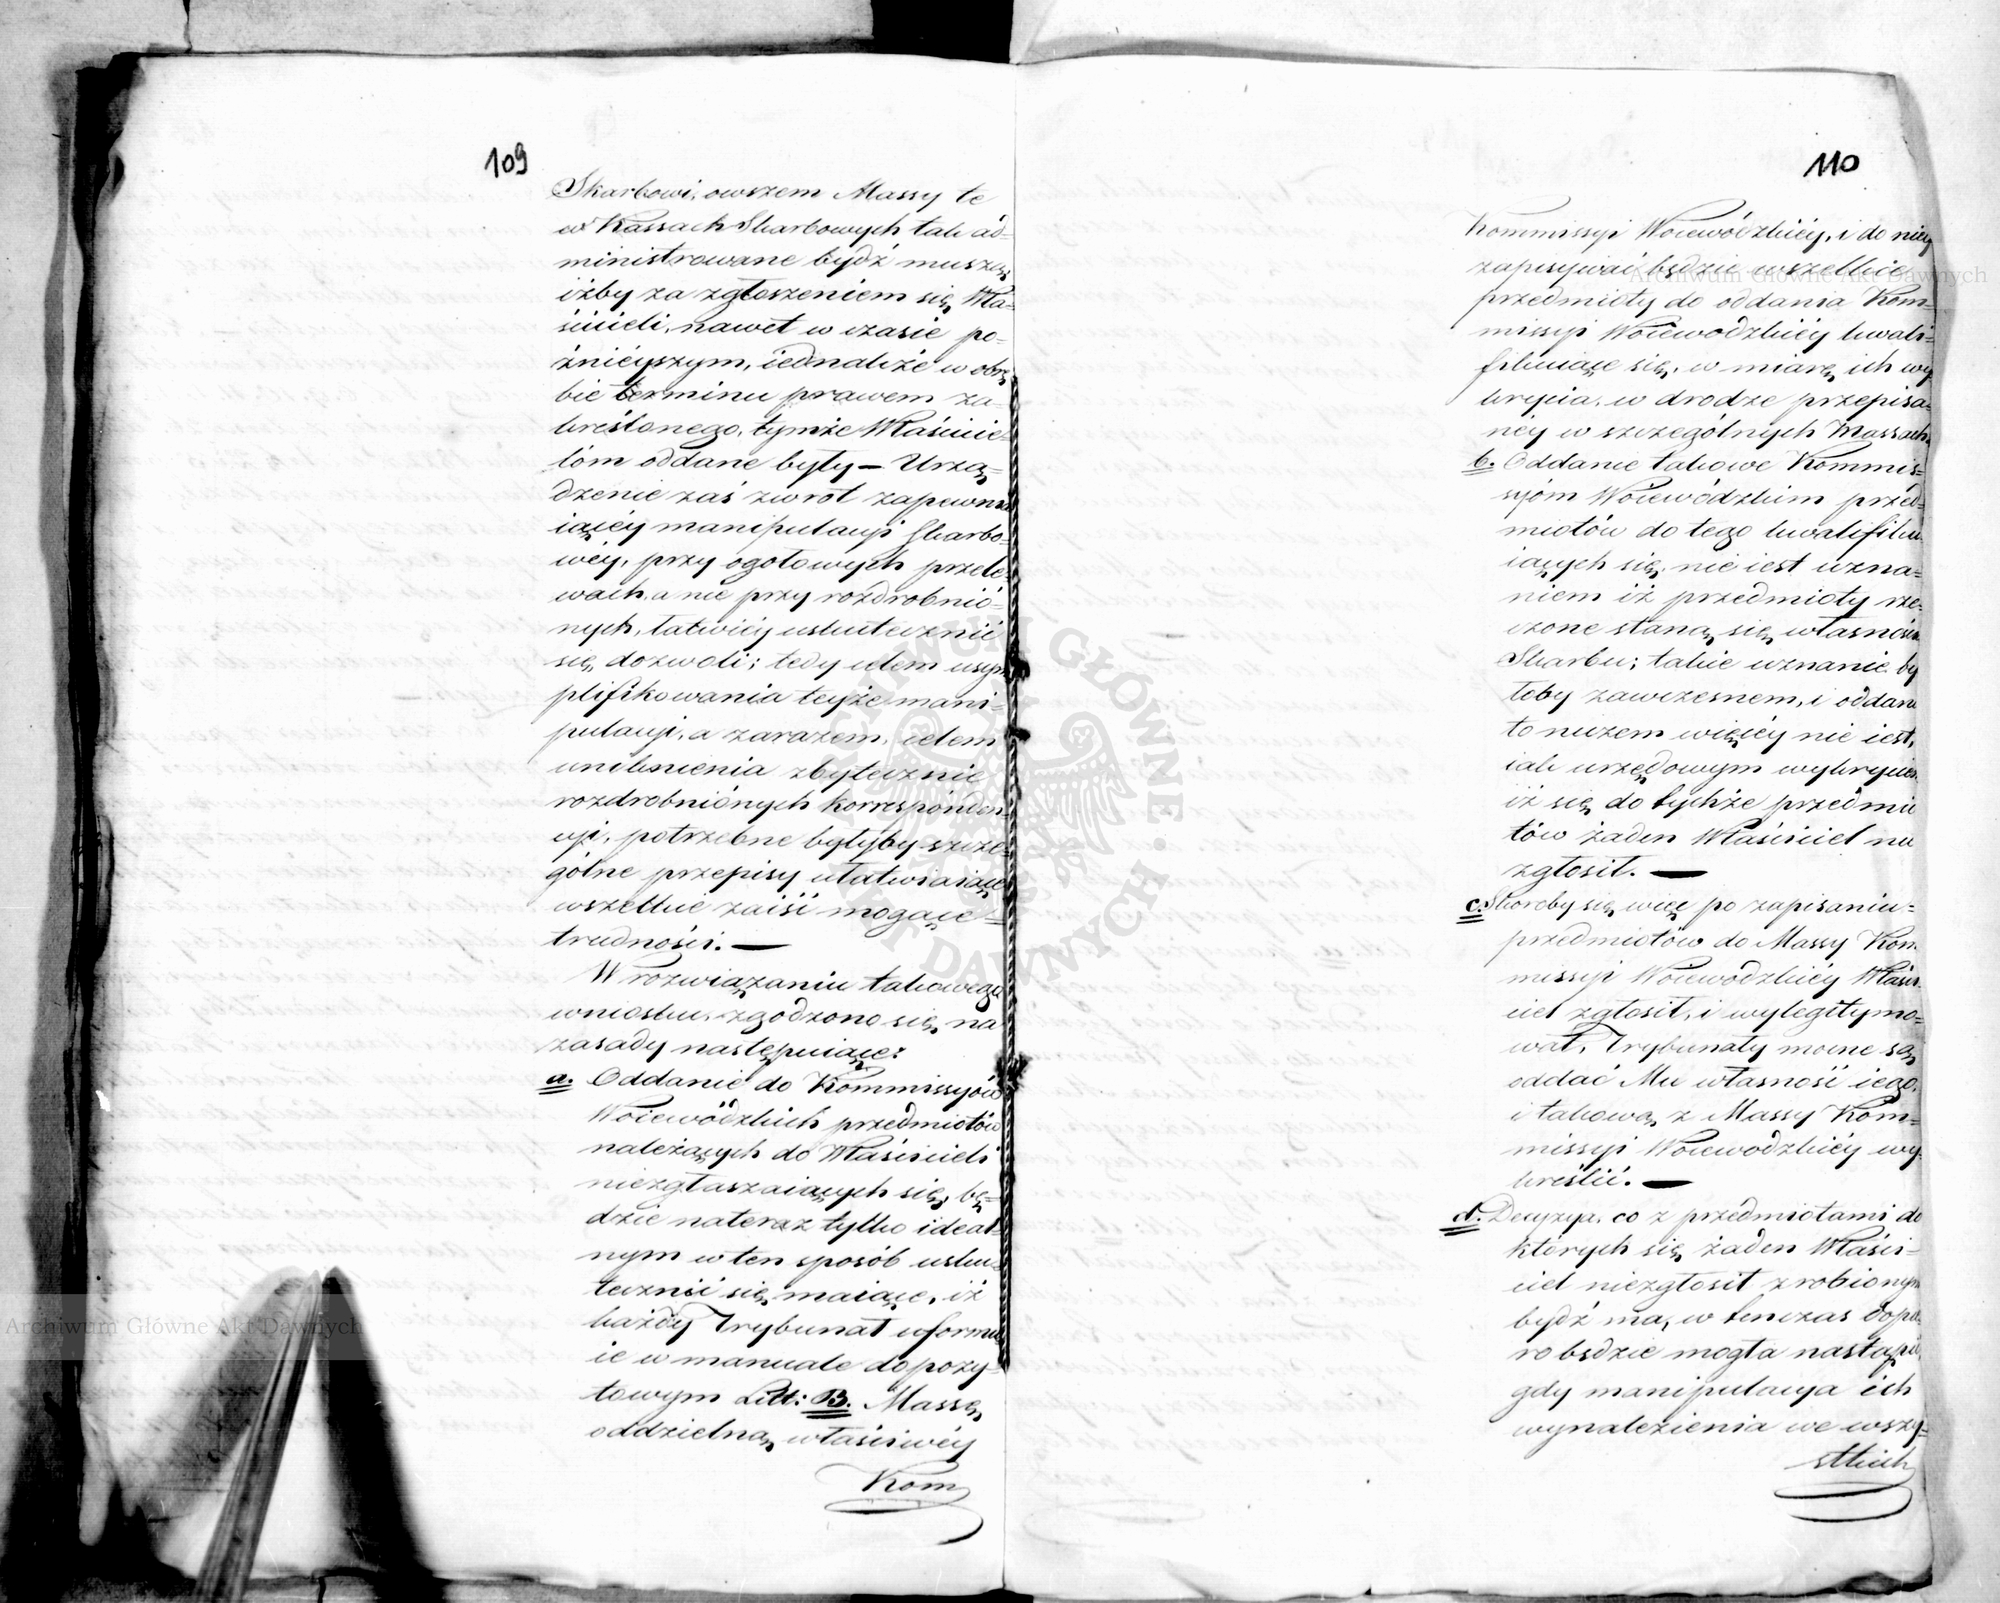 109
Skarbowi, owszem Massy te
w Kassach Skarbowych tak ad-
ministrowane bydź muszą,
iżby za zgłoszeniem się Wła-
ścicieli, nawet w czasie po-
źnieyszym, iednakże w obrę-
bie terminu prawem za-
kreślonego, tymże Właścicie-
lom oddane były — Urzą-
dzenie zaś zwrot zapewnia
iącéy manipulacyi Skarbo-
wéy, przy ogółowych przele-
wach, a nie przy rozdrobnió-
nych, łatwiéy uskutecznić
się dozwoli; tedy celem usym
plifikowania teyże mani-
pulacyi, a zarazem, celem
uniknienia zbytecznie
rozdrobniónych korrespónden-
cyi, potrzebne byłyby szcze-
gólne przepisy ułatwiaiące
wszelkie zaiść mogące
trudności. —
W rozwiązaniu takowego
wniosku, zgodzono się na
zasady następuiące:
a. Oddanie do Kommissyów
Woiewódzkich przedmiotów
należących do Właścicieli
niezgłaszaiących się, bę-
dzie nateraz tylko ideal-
nym w ten sposób usku-
tecznić się maiące, iż
każdy Trybunał uformu
ie w manuale depozy-
towym Litt: B. Massę
oddzielną właściwéy
Kom
110
Kommissyi Woiewódzkiéy, i do niéy
zapisywać będzie wszelkie
przedmioty do oddania Kom-
missyi Woiewodzkiéy kwali-
fikuiące się, w miarę ich wy
krycia, w drodze przepisa-
néy w szczególnych Massach.
b. Oddanie takowe Kommis-
syóm Woiewódzkim przed-
miotów do tego kwalifiku
iących się, nie iest uzna-
niem iż przedmioty rze-
czone staną się własnością
Skarbu; takie uznanie by
łoby zawczesnem, i oddanie
to niczem więcéy nie iest,
iak urzędowym wykryciem
iż się do tychże przedmio
tów żaden Właściciel nie
zgłosił. —
c. Skoroby się więc po zapisaniu
przedmiotów do Massy Kom
missyi Woiewódzkiéy Właści
ciel zgłosił, i wylegitymo-
wał, Trybunały mocne są
oddać Mu własność iego,
i takową z Massy Kom-
missyi Woiewodzkiéy wy
kreślić. —
d. Decyzya, co z przedmiotami do
których się żaden Właści-
ciel niezgłosił zrobionym
bydź ma, w tenczas dopie
ro będzie mogła nastąpić,
gdy manipulacya ich
wynalezienia we wszy-
stkich
Archiwum Główne Akt Dawnych
Archiwum Główne Akt Dawnych
ARCHIWUM GŁÓWNE AKT DAWNYCH